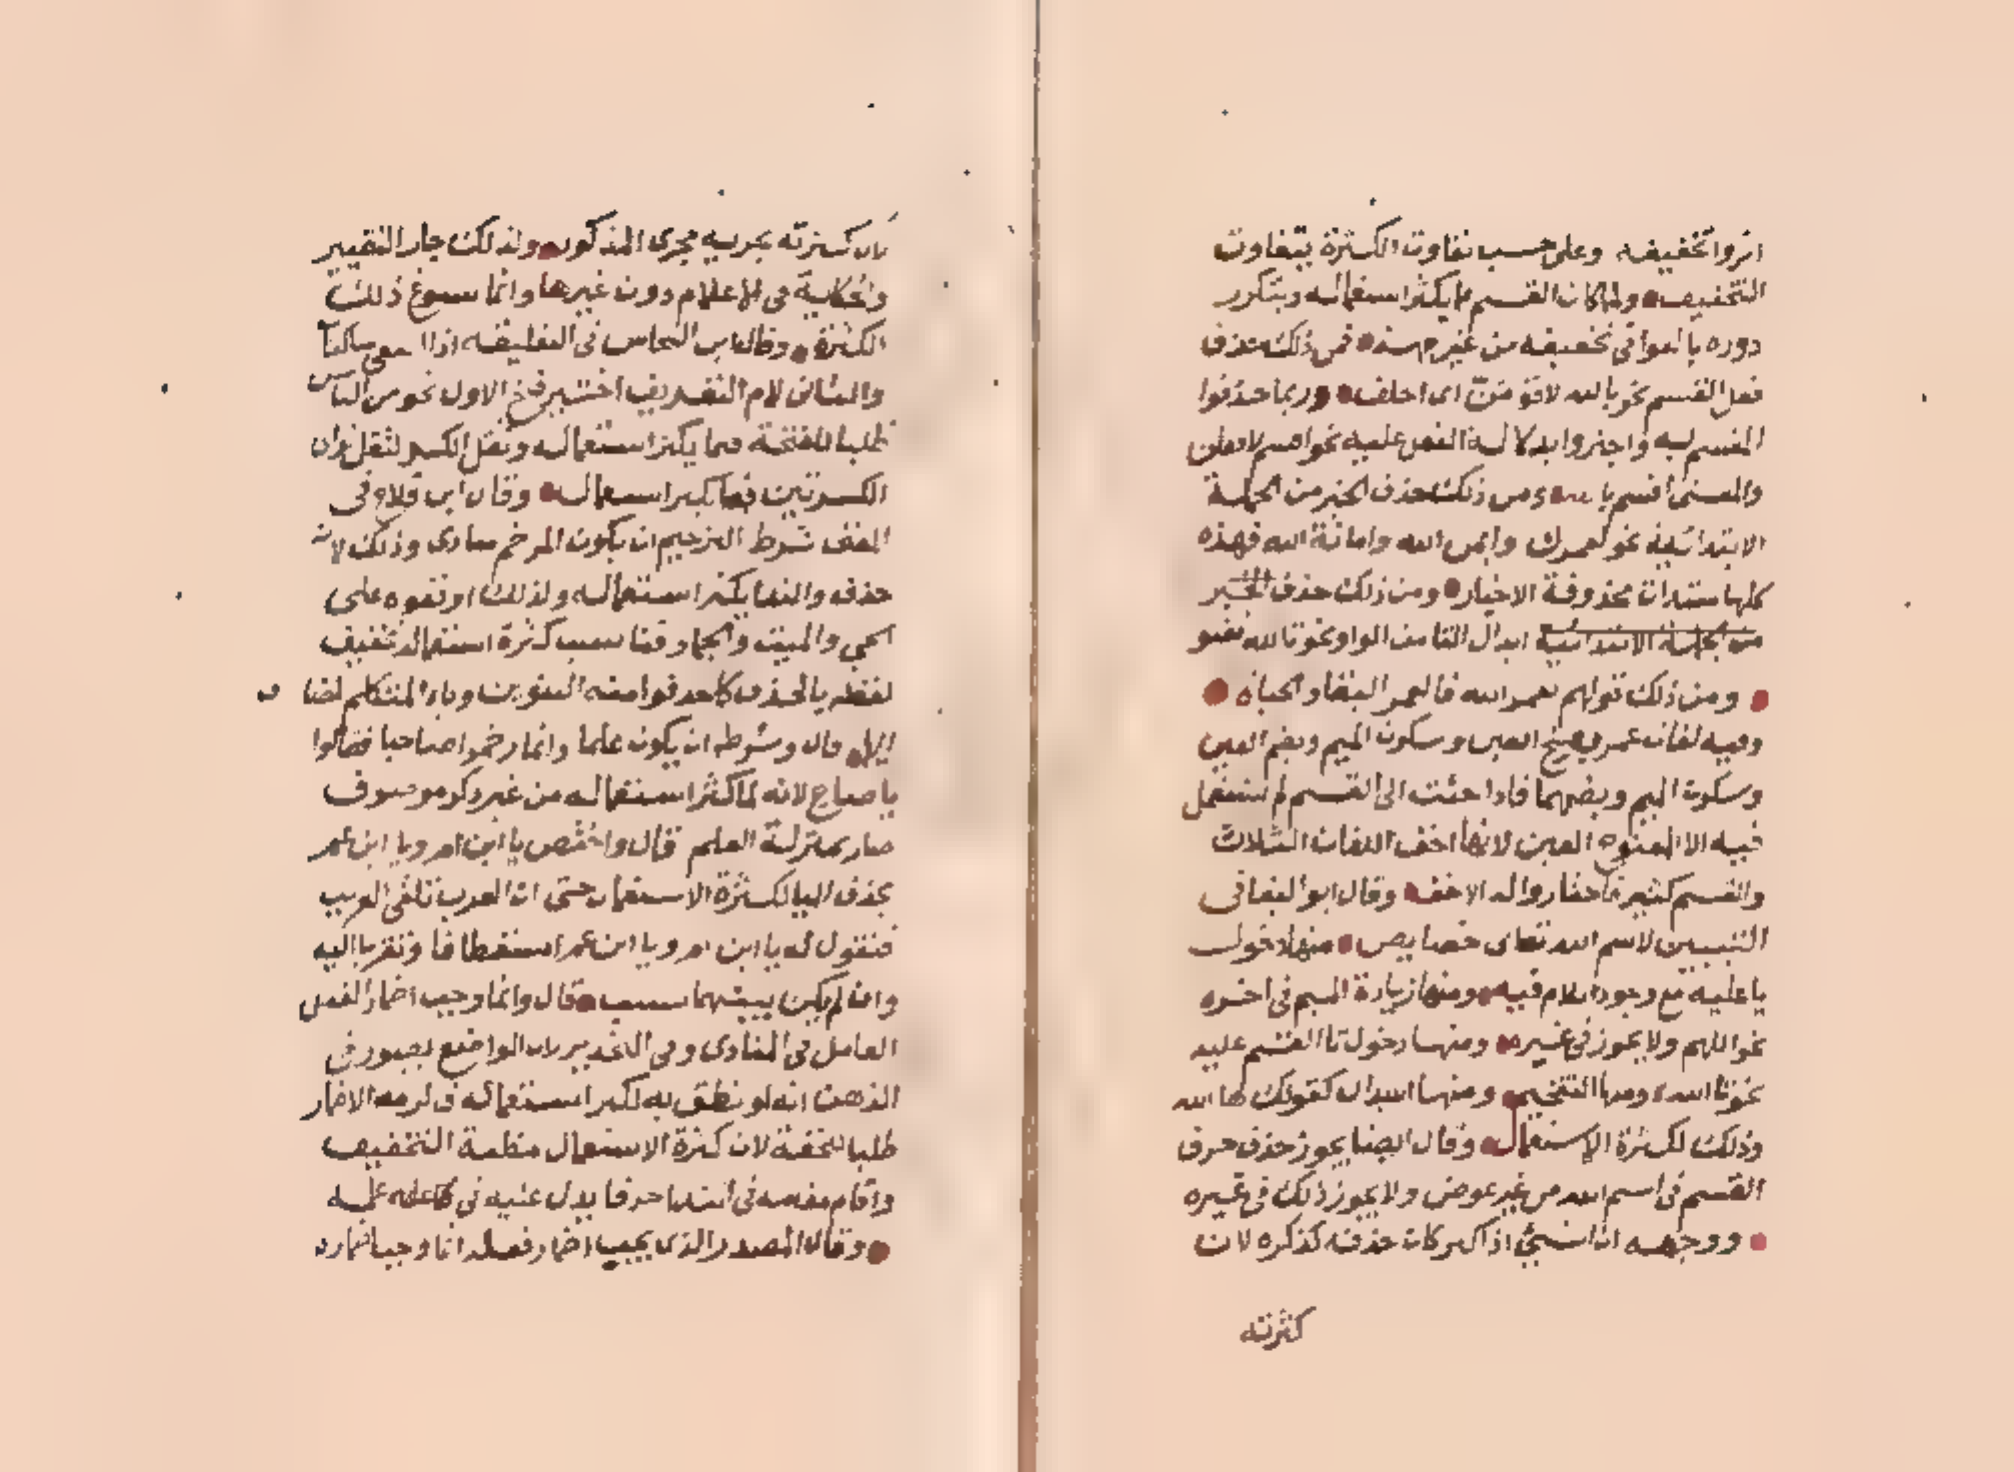 اثروا تخفيفه وعلى حسب تفاوت الكثرة يتفاوت
التخفيف ولما كان القسم مما يكثر استعماله ويتكرر
دوره بالغوا في تخفيفه من غير جهة فمن ذلك حذف
فعل القسم نحو بالله لاقومن اى احلف وربما حذفوا
المقسم به واجتزوا بدلالة الفعل عليه نحو اقسم لافعلن
والمعنى اقسم بالله ومن ذلك حذف الخبر من الجملة
الابتدائية نحو لعمرك وايمن الله وامانة الله فهذه
كلها مبتدات محذوفة الاخبار ومن ذلك حذف الخبر
من الجملة الابتدائية ابدال التا من الواو نحو تالله تفتو
ومن ذلك قولهم لعمر الله فالعمر البقا والحياة
وفيه لغات عمر بفتح العين وسكون الميم وبضم العين
وسكون الميم وبضمهما فاذا جئت الى القسم لم تستعمل
فيه الا المفتوح العين لانها اخف اللغات الثلاث
والقسم كثير فاختاروا له الاخف وقال ابو البقا في
التبيين لاسم الله تعالى خصايص منها دخول
يا عليه مع وجود اللام فيه ومنها زيادة الميم في اخره
نحو اللهم ولا يجوز في غيره ومنها دخول تا القسم عليه
نحو تالله ومنها التفخيم ومنها ابدال كقولك ها الله
وذلك لكثرة الاستعمال وقال ايضا يجوز حذف حرف
القسم في اسم الله من غير عوض ولا يجوز ذلك في غيره
ووجهه ان الشي اذا كثر كان حذفه كذكره لان
كثرته
كان كثرته تجريه مجرى المذكور ولذلك جاز التغيير
والحكاية في الاعلام دون غيرها وانما سوغ ذلك
الكثرة وقال ابن النحاس في التعليقه اذا
والثاني لام التعريف اختير فتح الاول نحو من الناس
طلبا للفتحة فيما يكثر استعماله وثقل الكسر لثقل توالى
الكسرتين فيما كثر استعماله وقال ابن فلاح في
المغنى شرط الترخيم ان يكون المرخم منادى وذلك لانه
حذف والندا يكثر استعماله ولذلك اوقعوه على
الحي والميت والجماد فناسب كثرة استعماله تخفيف
لفظه بالحذف كما حذفوا منه التنوين وياء المتكلم المضاف
اليها قال وشرطه ان يكون علما وانما رخموا صاحبا فقالوا
يا صاح لانه لما كثر استعماله من غير ذكر موصوف
صار بمنزلة العلم قال واختص يا ابن ام ويا ابن عم
بحذف اليا لكثرة الاستعمال حتى ان العرب تلقى الغريب
فتقول له يا ابن ام ويا ابن عم استعطافا وتقربا اليه
وان لم يكن بينهما سبب قال وانما وجب اضمار الفعل
العامل في المنادى وفي التحذير لان الواضع تصور في
الذهن انه لو نطق به لكثر استعماله فالزمه الاضمار
طلبا للخفة لان كثرة الاستعمال مظنة التخفيف
واقام مقامه في الندا حرفا يدل عليه في
وقال المصدر الذى يجب اضمار فعله انما وجب اضماره